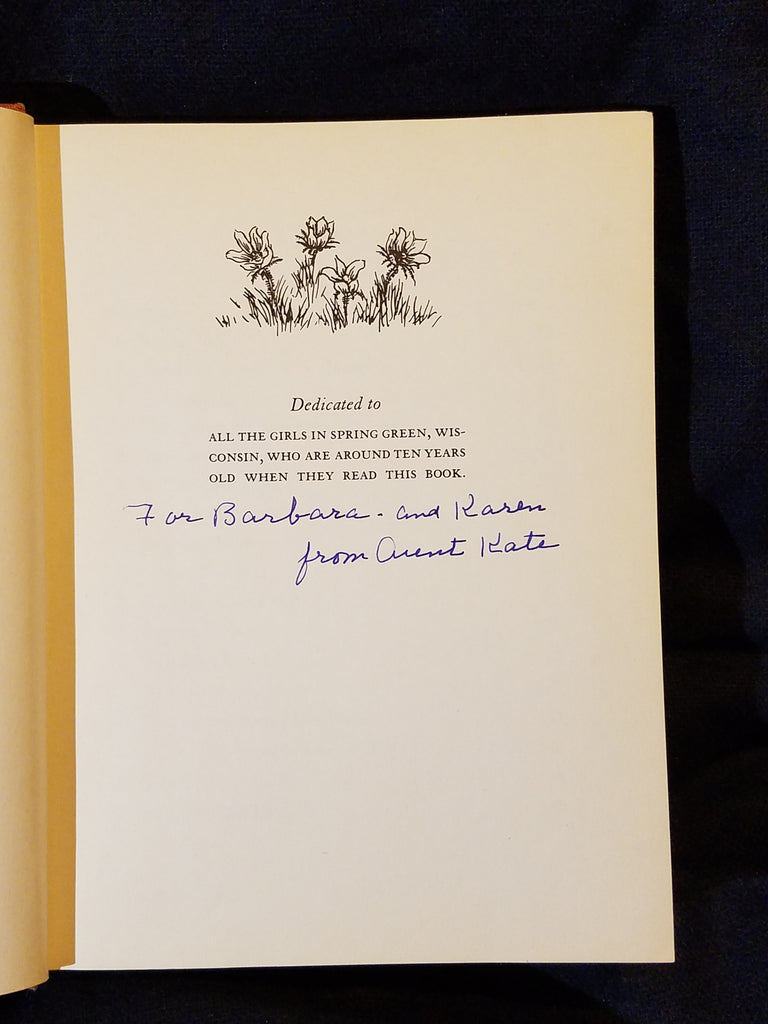 Dedicated to
ALL THE GIRLS IN SPRING GREEN, WIS-
CONSIN, WHO ARE AROUND TEN YEARS
OLD WHEN THEY READ THIS BOOK.
For Barbara - and Karen
from Aunt Kate